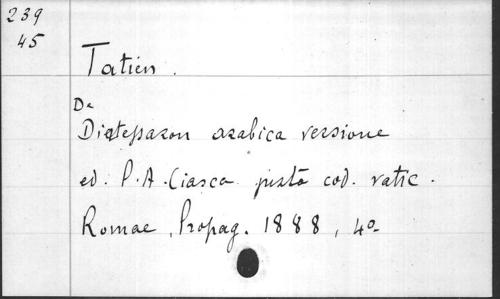 239
45
Tatien.
De
Diatessaron arabica versione
ed. P. A. Ciasca juxta cod. vatic.
Romae, Propag. 1888, 4º